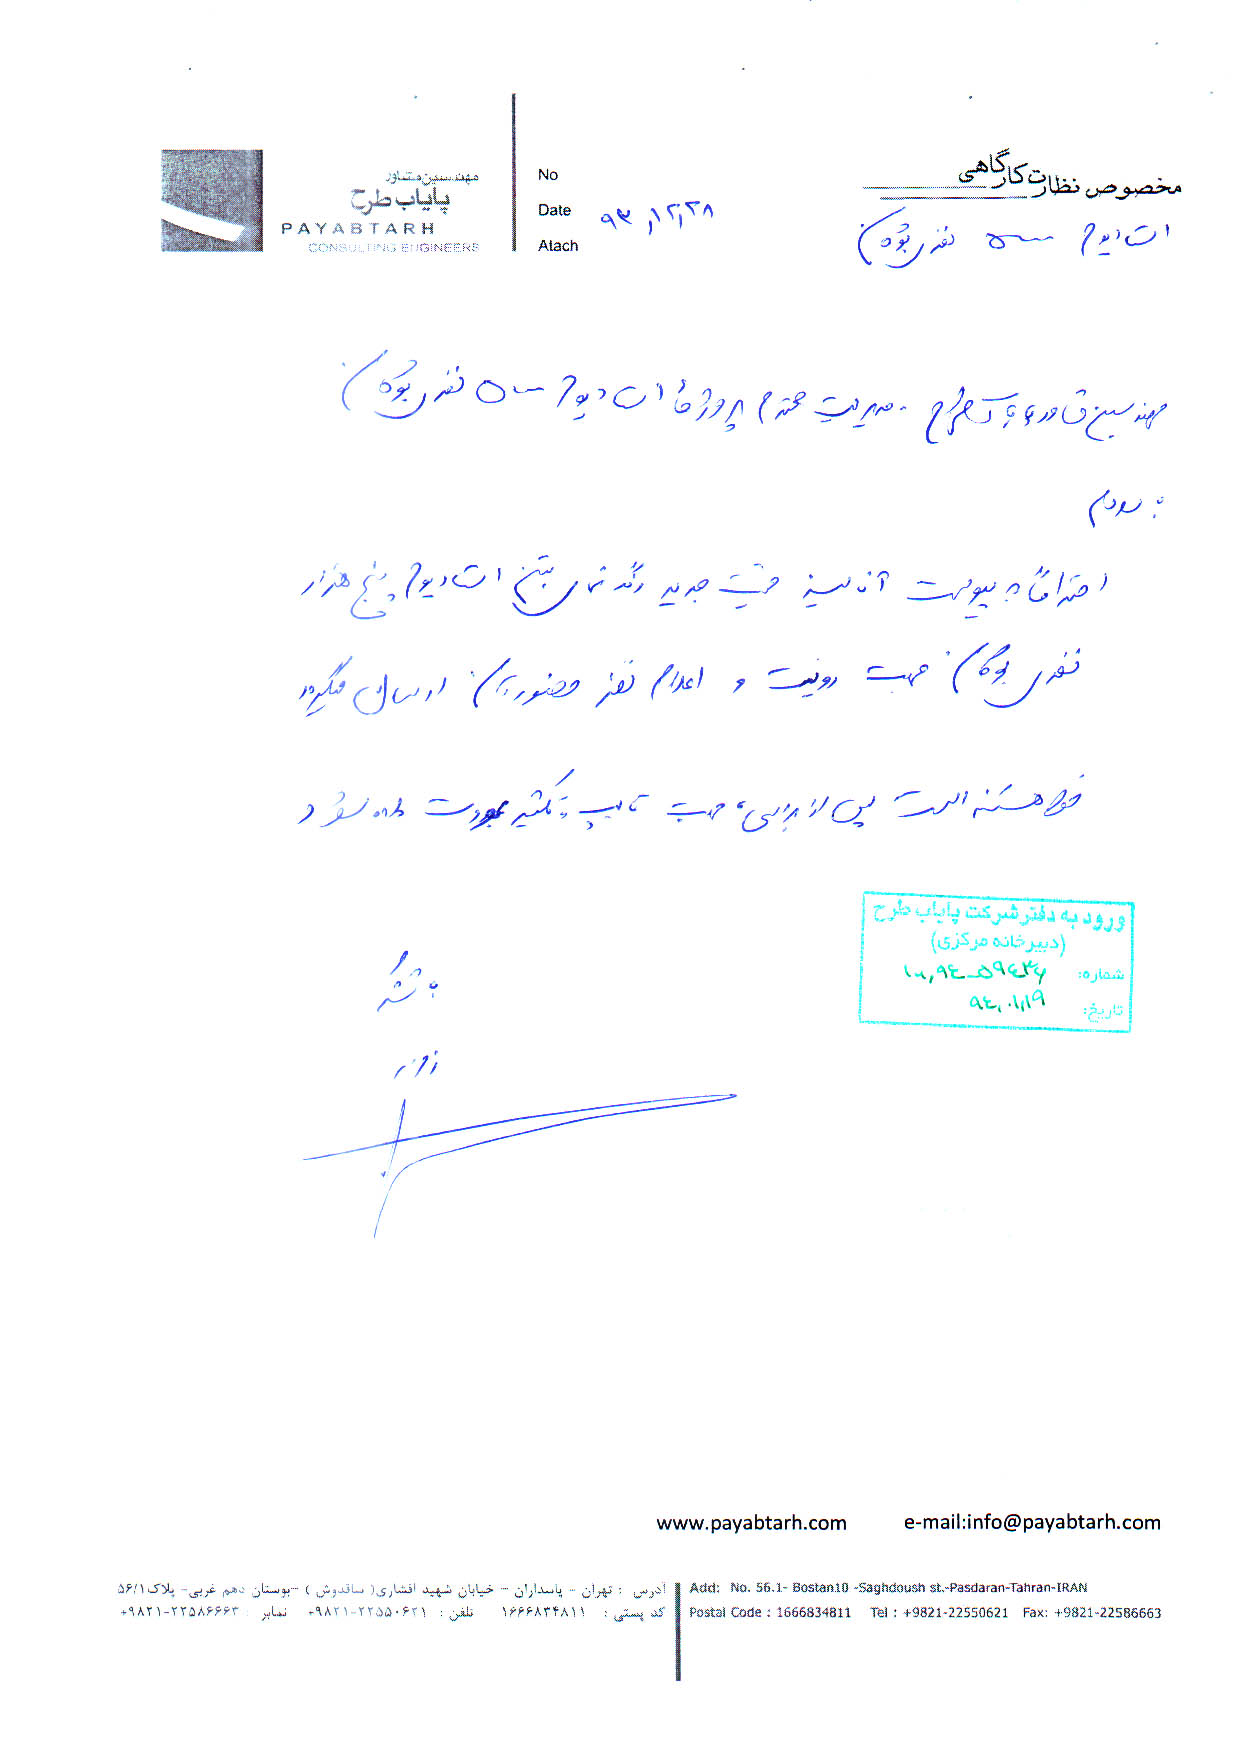 مهندسین مشاور
پایاب طرح
PAYABTARH
CONSULTING ENGINEERS
No
Date ۹۳,۱۲,۲۸
Atach
مخصوص نظارت کارگاهی
استادیوم ۵۰۰۰ نفری بوکان
مهندسین مشاور پایاب طرح - مدیریت محترم پروژه استادیوم ۵۰۰۰ نفری بوکان
با سلام
احتراماً به پیوست آنالیز قیمت جدید رنگ نمای بتنی استادیوم پنج هزار
نفری بوکان جهت رویت و اعلام نظر حضورتان ارسال میگردد
خواهشمند است پس از بررسی، جهت تایپ و تکثیر عودت داده شود
با تشکر
ورود به دفتر شرکت پایاب طرح
(دبیرخانه مرکزی)
شماره:
تاریخ: ۹۴,۰۱,۱۹
www.payabtarh.com e-mail:info@payabtarh.com
آدرس : تهران - پاسداران - خیابان شهید افشاری( ساقدوش ) -بوستان دهم غربی- پلاک ۵۶/۱
کد پستی : ۱۶۶۶۸۳۴۸۱۱ تلفن : ۲۲۵۵۰۶۲۱-۹۸۲۱+ نمابر : ۲۲۵۸۶۶۶۳-۹۸۲۱+
Add: No. 56.1- Bostan10 -Saghdoush st.-Pasdaran-Tahran-IRAN
Postal Code : 1666834811 Tel : +9821-22550621 Fax: +9821-22586663